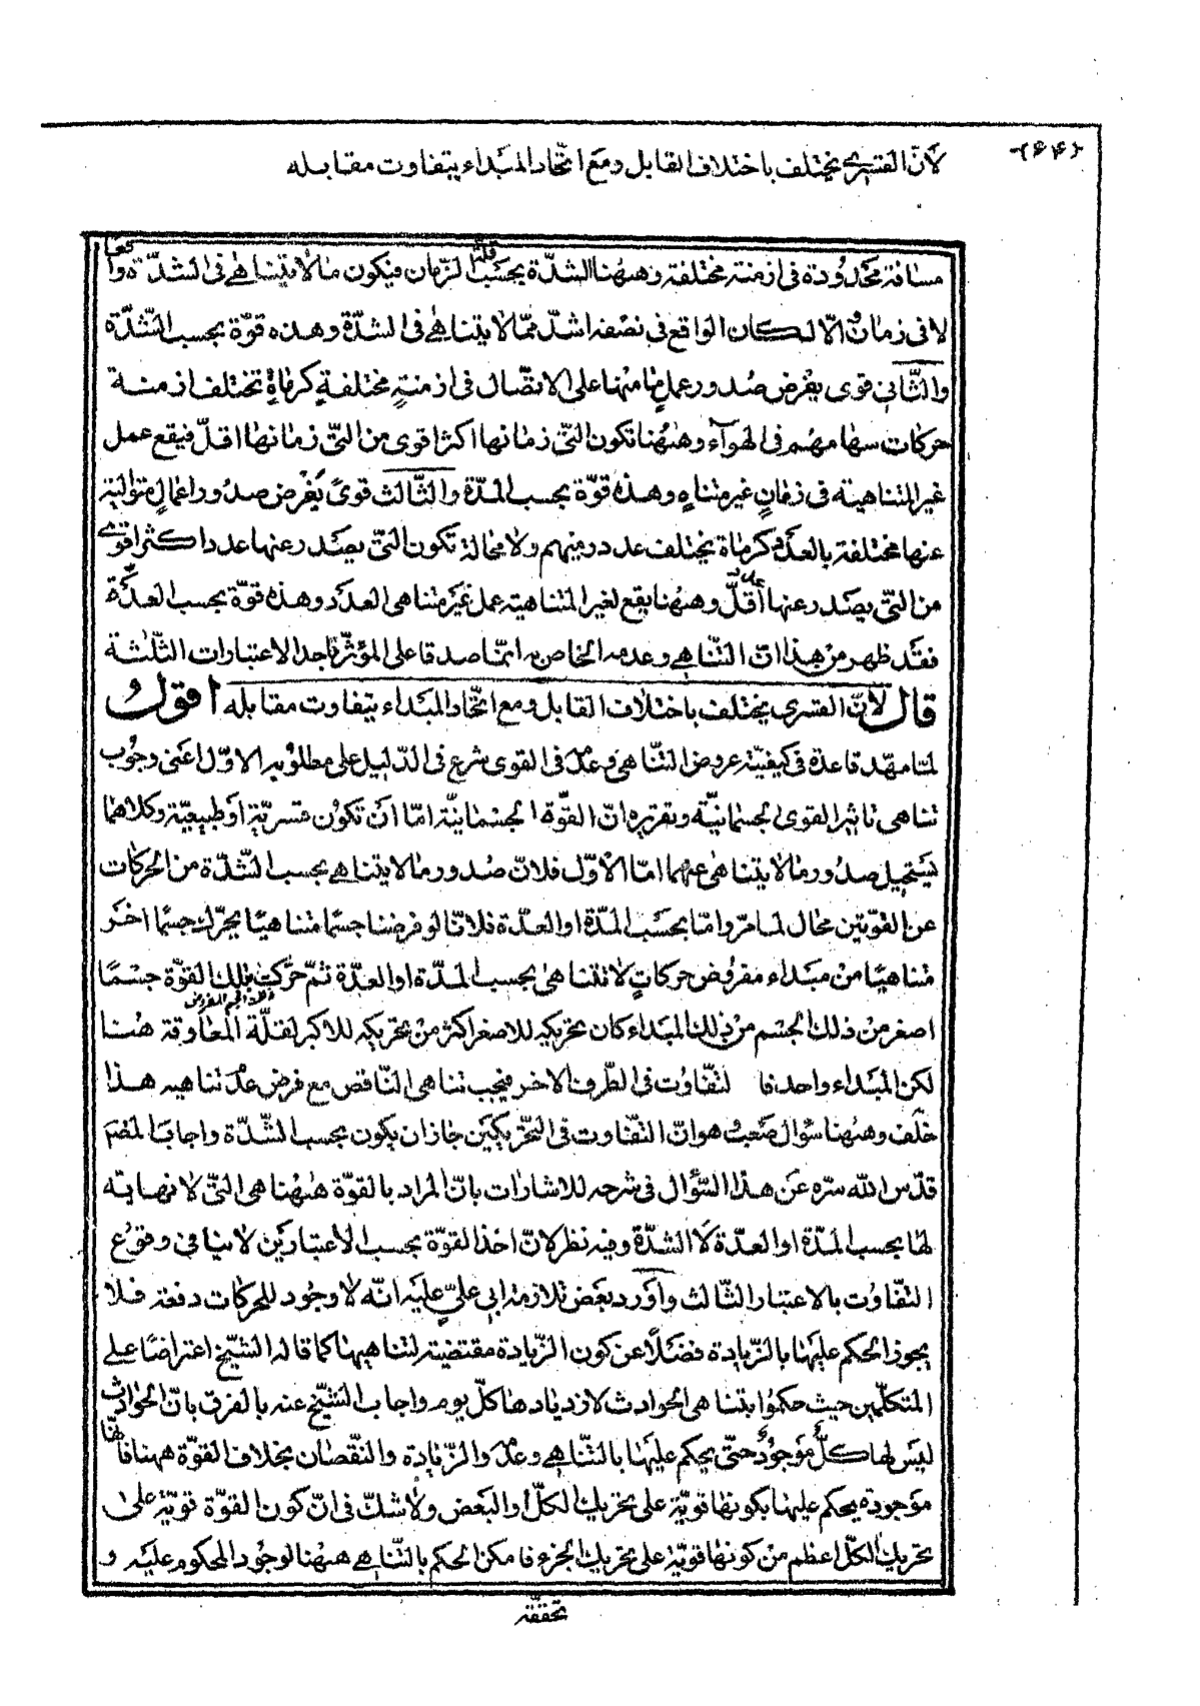 ﴿٦٤٤﴾
لأنّ القسري يختلف باختلاف القابل ومع اتّحاد المبداء يتفاوت مقابله
مسافة محدودة فى ازمنة مختلفة وههنا الشدّة بحسب قلّة الزمان فيكون ما لا يتناهى فى الشدّة واقعا
لا فى زمان والّا لكان الواقع فى نصفه اشدّ ممّا لا يتناهى فى الشدّة وهذه قوّة بحسب الشّدّة
والثّانى قوى يفرض صدور عمل ما منها على الاتّصال فى ازمنةٍ مختلفةٍ كرماةٍ تختلف ازمنة
حركات سهامهم فى الهوآء وههنا تكون التى زمانها اكثر اقوى من التى زمانها اقلّ فيقع عمل
غير المتناهية فى زمانٍ غير متناهٍ وهذه قوّة بحسب المدّة والثّالث قوىً يفرض صدور اعمالٍ متوالية
عنها مختلفة بالعدد كرماة يختلف عدد رميهم ولا محالة تكون التى يصدر عنها عدد اكثر اقوى
من التى يصدر عنها عدد أقلّ وههنا يقع لغير المتناهية عمل غير متناهى العدد وهذه قوّة بحسب العدّة
فقد ظهر من هذا انّ التّناهى وعدمه الخاص به انّما صدقا على المؤثّر باحد الاعتبارات الثّلثة
قال لأنّ القسرى يختلف باختلاف القابل ومع اتّحاد المبداء يتفاوت مقابله اقول
لمّا مهّد قاعدة فى كيفيّة عروض التناهى وعدمه فى القوى شرع فى الدّليل على مطلوبه الاوّل اعنى وجوب
تناهى تاثير القوى الجسمانيّة وتقريره انّ القوّة الجسمانيّة امّا ان تكون قسريّة او طبيعيّة وكلاهما
يستحيل صدور ما لا يتناهى عنهما امّا الأوّل فلانّ صدور ما لا يتناهى بحسب الشّدّة من الحركات
عن القوّتين محال لما مرّ وامّا بحسب المدّة او العدّة فلانّا لو فرضنا جسمًا متناهيًا يحرّك جسمًا اخر
متناهيًا من مبداء مفروض حركاتٍ لا تتناهى بحسب المدّة او العدّة ثمّ حرّكت بتلك القوّة جسمًا
اصغر من ذلك الجسم من ذلك المبداء كان تحريكه للاصغر اكثر من تحريكه للاكبر لقلّة المعاوقة هنا
لكن المبداء واحد فا لتّفاوت فى الطرف الاخر فيجب تناهى النّاقص مع فرض عدم تناهيه هذا
خلف وههنا سؤال صعب هو انّ التّفاوت فى التحريكين جاز ان يكون بحسب الشّدّة واجاب المصم
قدّس الله سرّه عن هذا السّؤال فى شرحه للاشارات بانّ المراد بالقوّة ههنا هى التى لا نهاية
لها بحسب المدّة او العدّة لا الشدّة وفيه نظر لانّ اخذ القوّة بحسب الاعتبارين لا ينافى وقوع
التّفاوت بالاعتبار الثّالث وأورد بعض تلامذة ابى علىّ عليه انّه لا وجود للحركات دفعة فلا
يجوز الحكم عليها بالزّيادة فضلًا عن كون الزّيادة مقتضية لتناهيها كما قاله الشّيخ اعتراضًا على
المتكلّمين حيث حكموا بتناهى الحوادث لازديادها كلّ يوم واجاب الشّيخ عنه بالفرق بانّ الحوادث
ليس لها كلّ موجود حتّى يحكم عليها بالتّناهى وعدمه والزّيادة والنّقصان بخلاف القوّة ههنا فانّها
موجودة يحكم عليها بكونها قويّة على تحريك الكلّ او البعض ولا شكّ فى انّ كون القوّة قويّة على
تحريك الكلّ اعظم من كونها قويّة على تحريك الجزء فامكن الحكم بالتّناهى ههنا لوجود المحكوم عليه و
تحققه